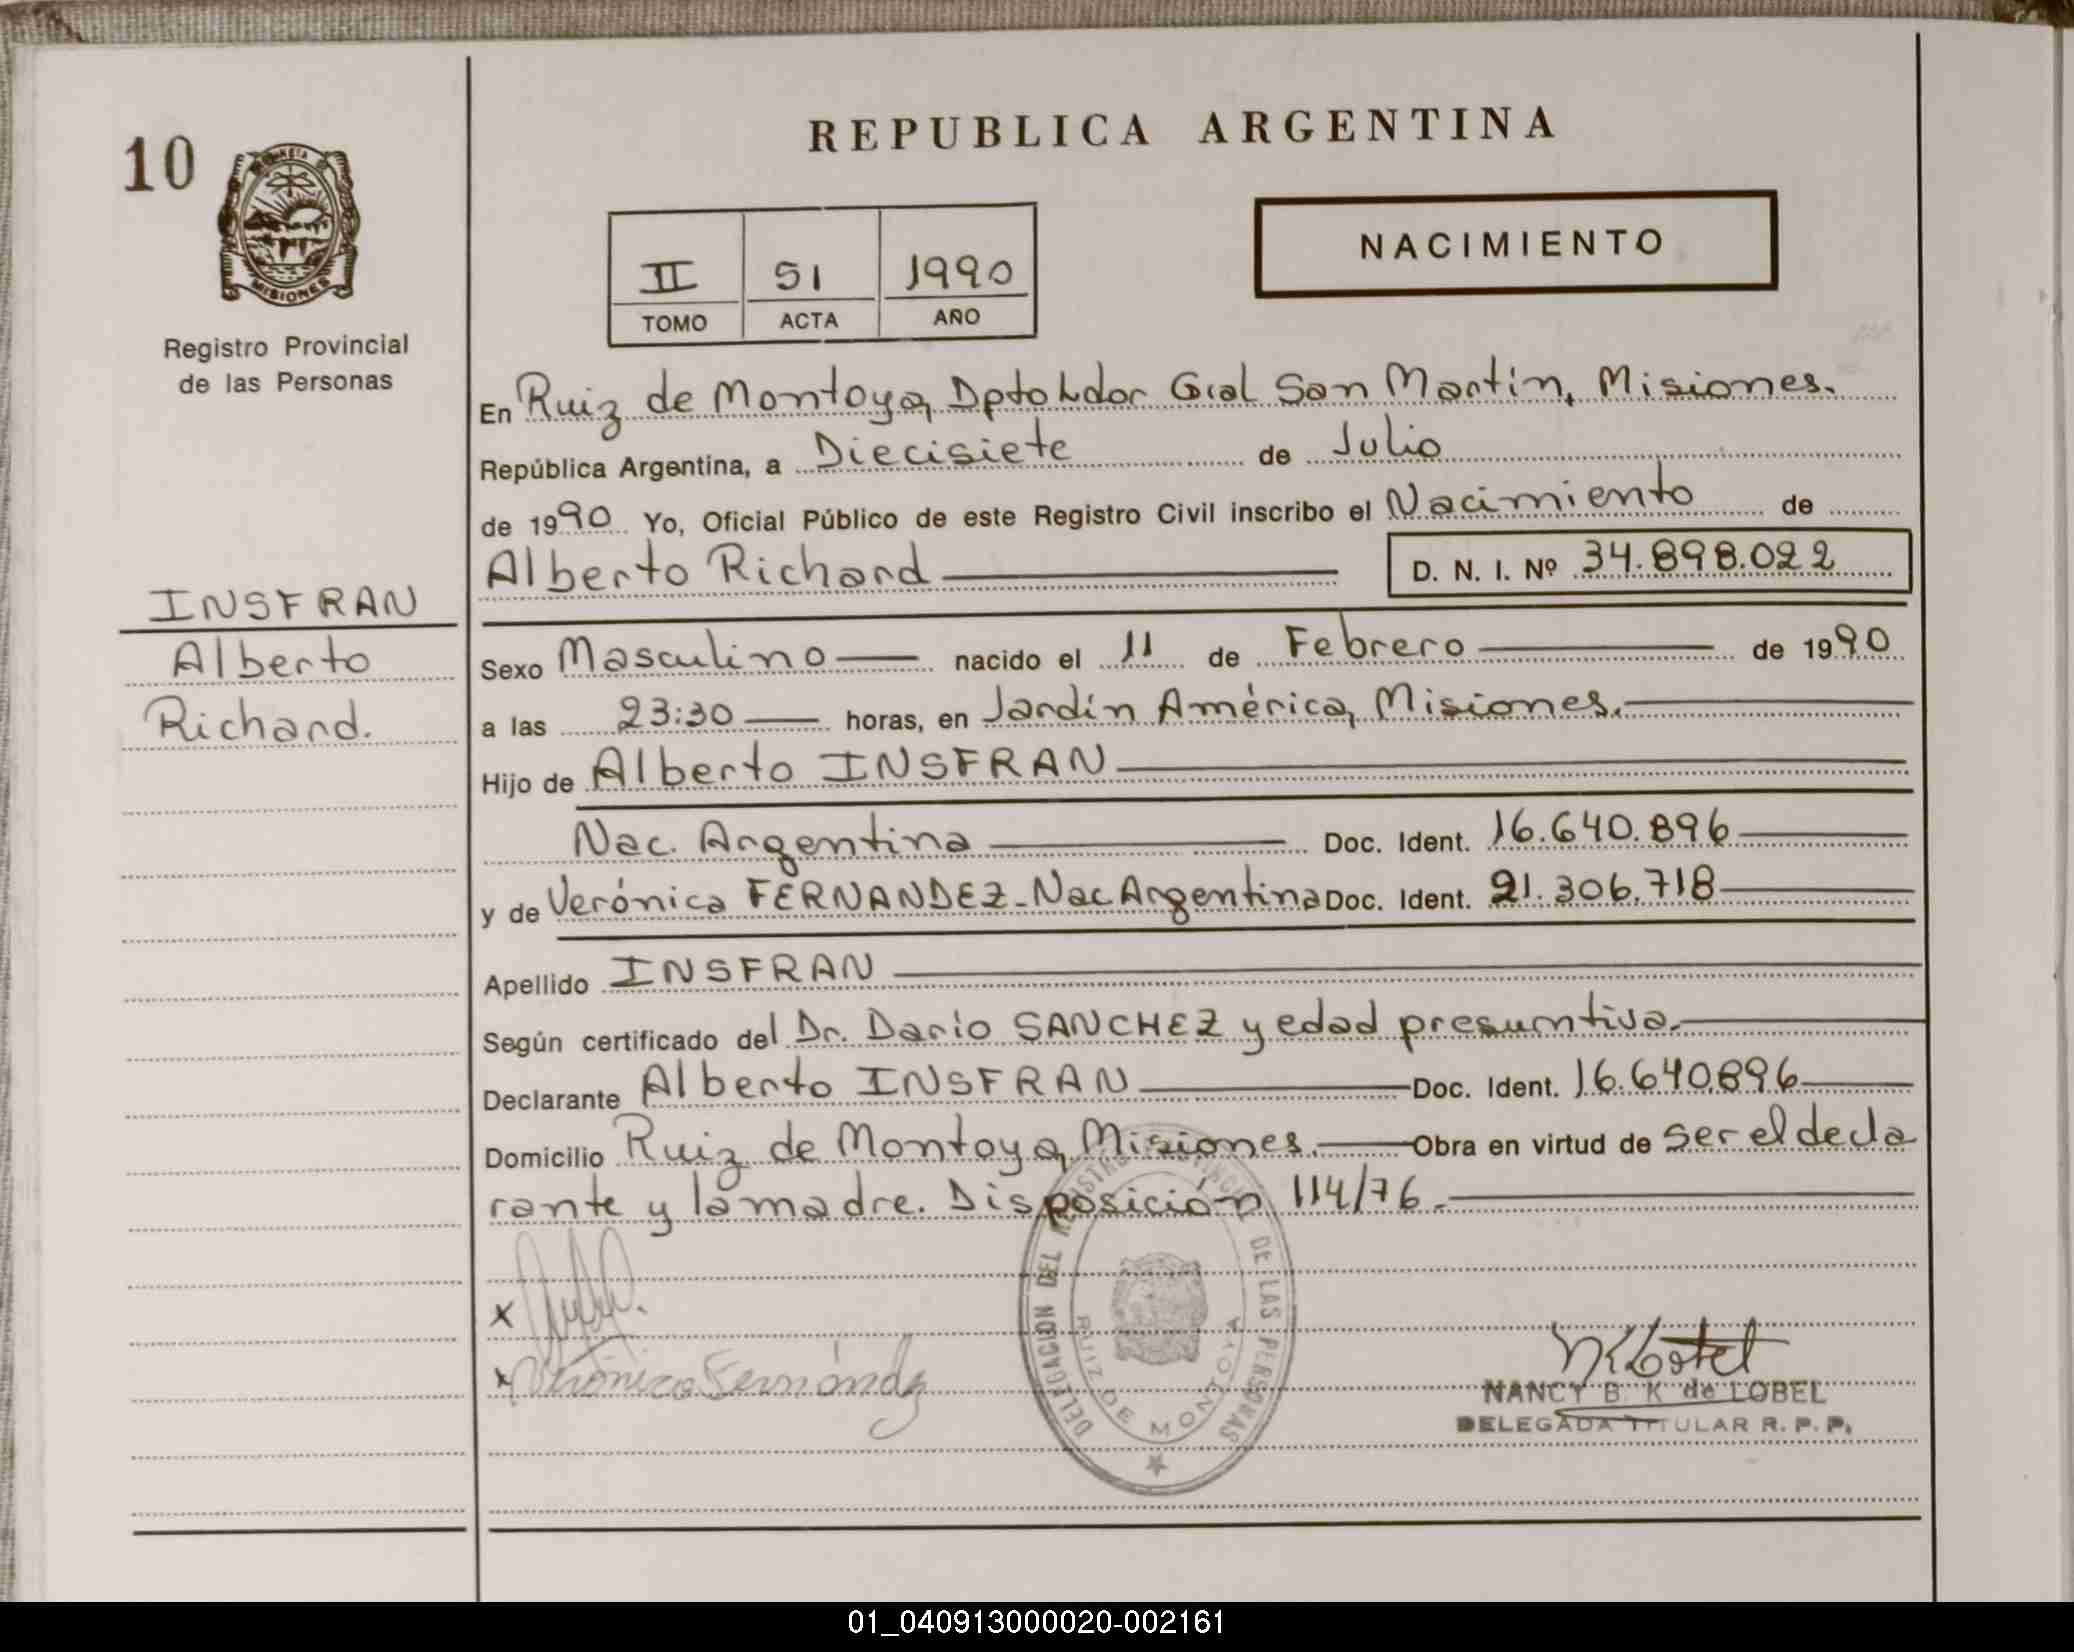 10
PROVINCIA
MISIONES
Registro Provincial
de las Personas
INSFRAN
Alberto
Richard.
REPUBLICA ARGENTINA
II 51 1990
TOMO ACTA AÑO
NACIMIENTO
En Ruiz de Montoya, Dpto Ldor Gral San Martín, Misiones.
República Argentina, a Diecisiete de Julio
de 1990 Yo, Oficial Público de este Registro Civil inscribo el Nacimiento de
Alberto Richard D. N. I. Nº 34.898.022
Sexo Masculino nacido el 11 de Febrero de 1990
a las 23:30 horas, en Jardín América, Misiones.
Hijo de Alberto INSFRAN
Nac. Argentina Doc. Ident. 16.640.896
y de Verónica FERNANDEZ-Nac Argentina Doc. Ident. 21.306.718
Apellido INSFRAN
Según certificado del Dr. Darío SANCHEZ y edad presumtiva.
Declarante Alberto INSFRAN Doc. Ident. 16.640.896
Domicilio Ruiz de Montoya, Misiones. Obra en virtud de ser el decla
rante y la madre. Disposición 114/76.
x
x Verónica Fernández
DELEGACION DEL REGISTRO PROVINCIAL DE LAS PERSONAS
RUIZ DE MONTOYA
NANCY B. K de LOBEL
DELEGADA TITULAR R. P. P.
01_040913000020-002161